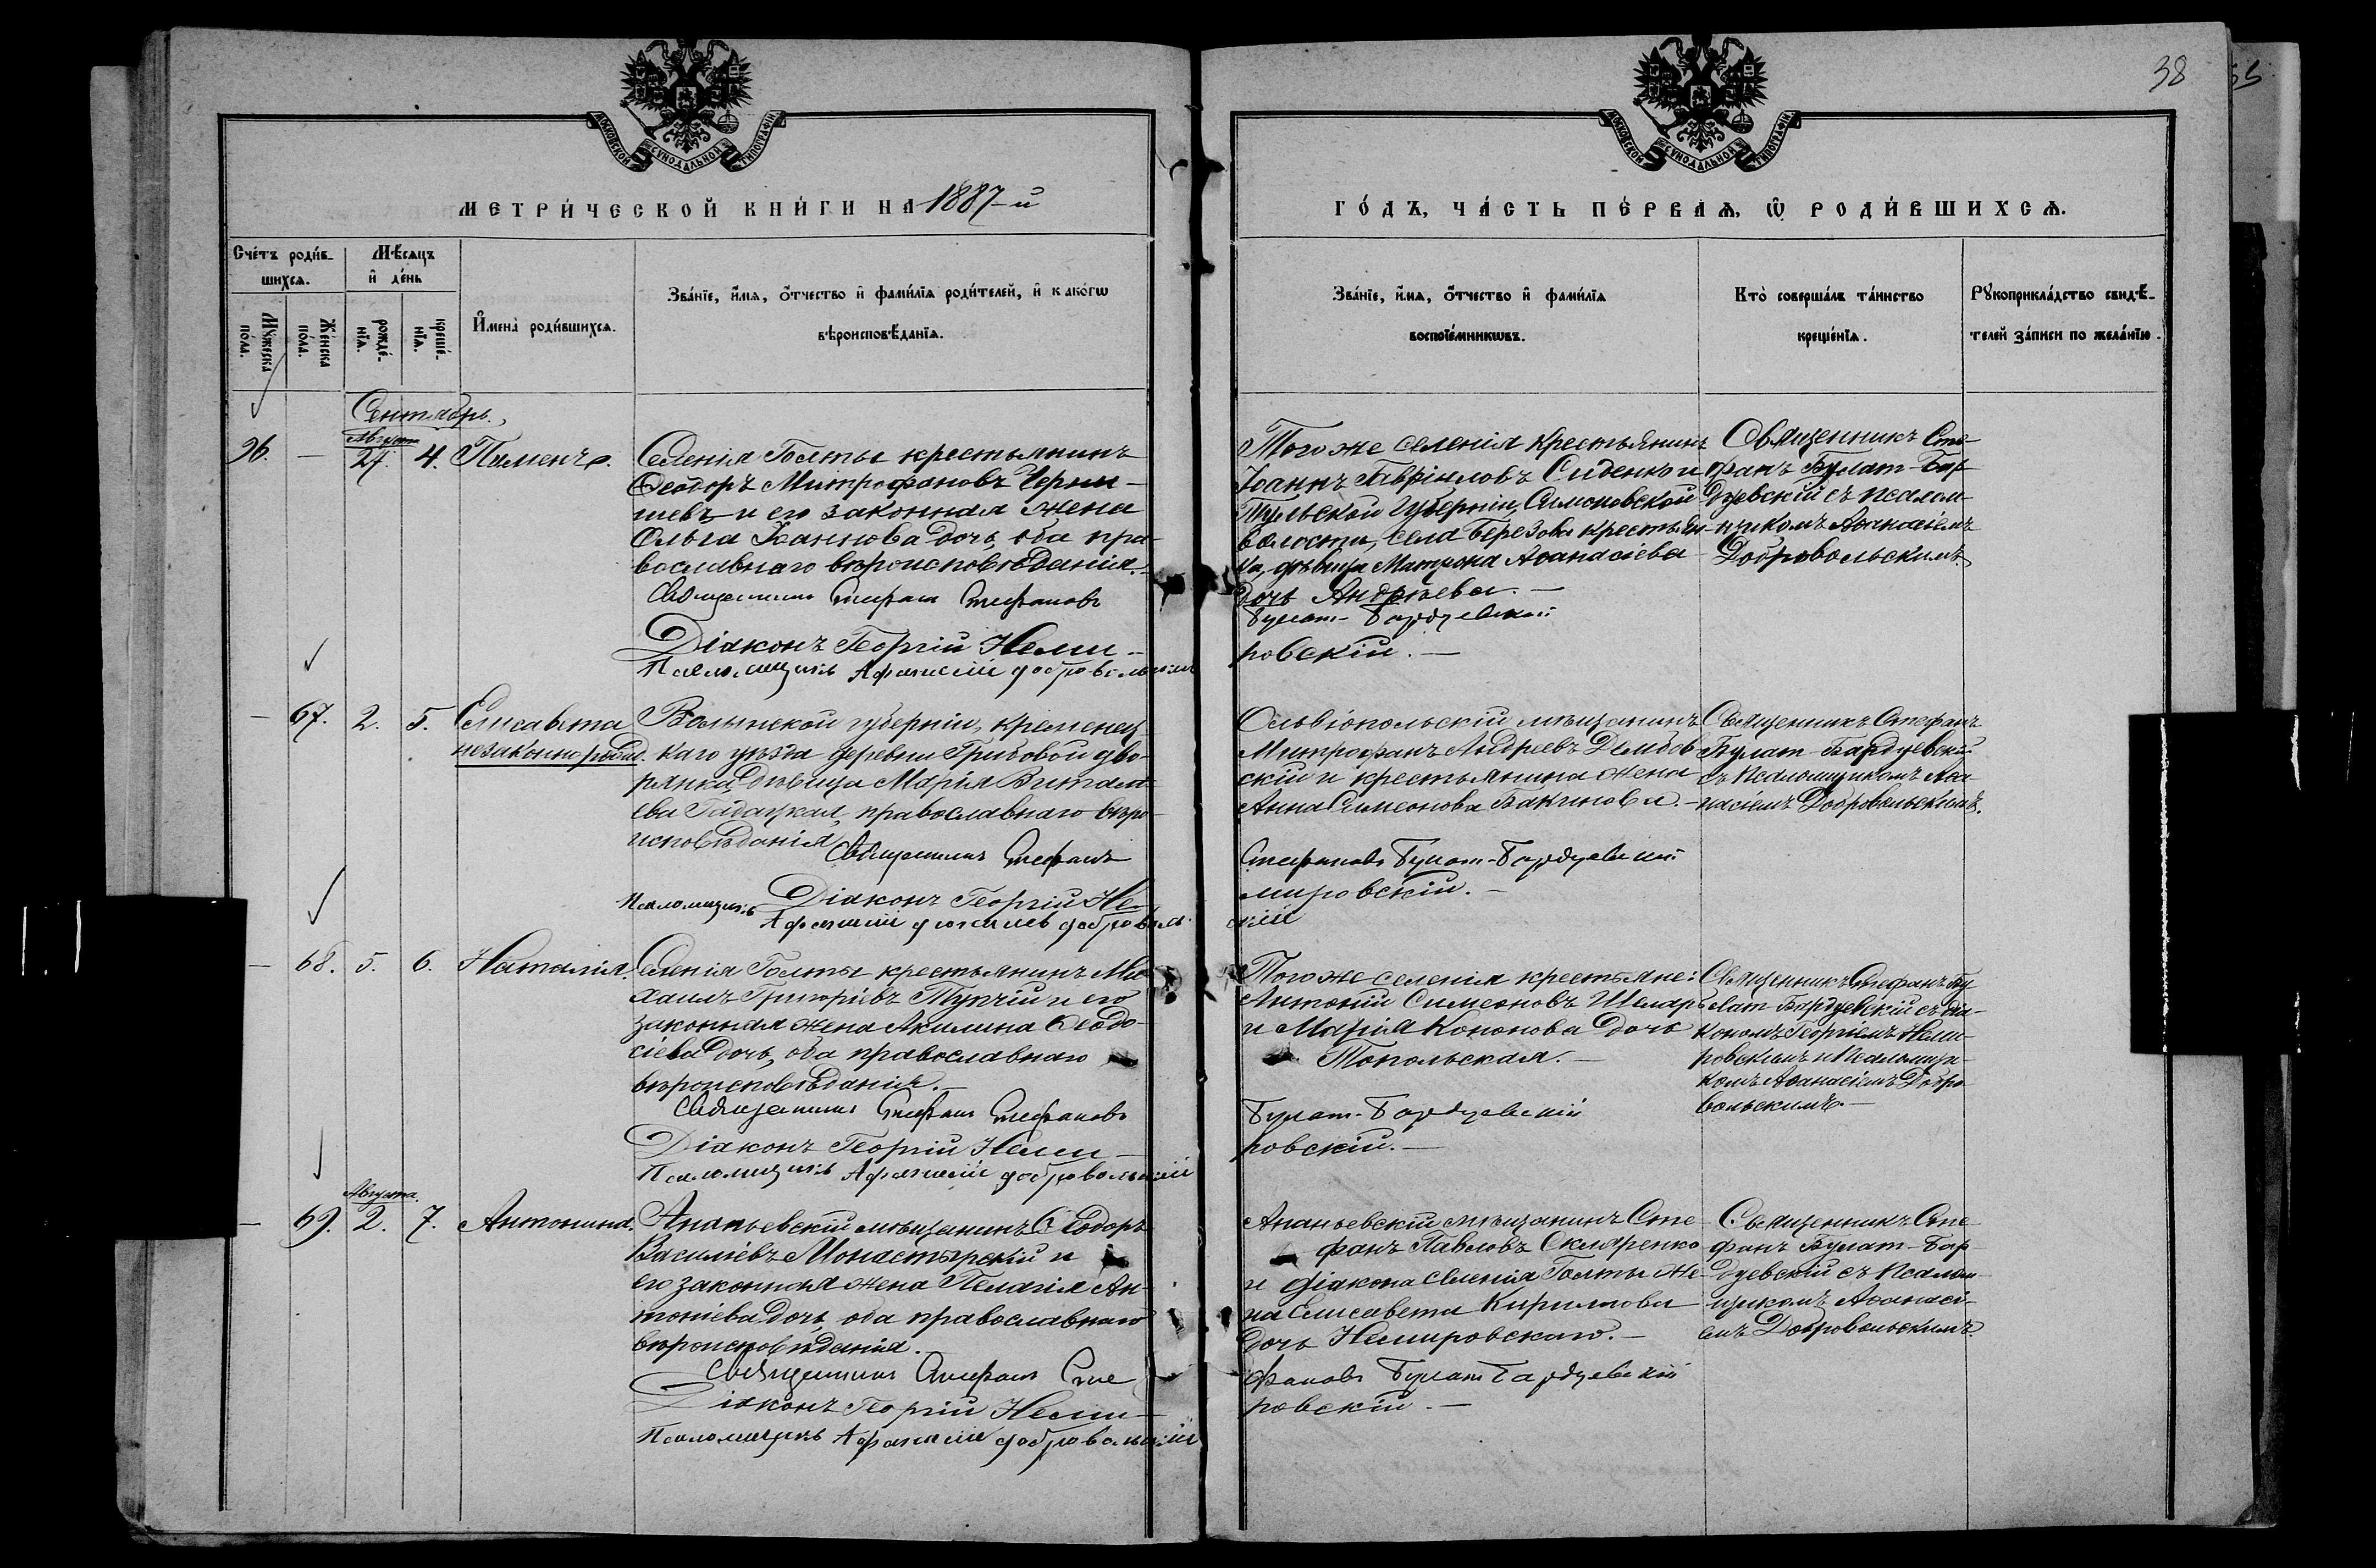 38
МОСКОВСКОЙ СѴНОДАЛЬНОЙ ТИПОГРАФІИ
МОСКОВСКОЙ СѴНОДАЛЬНОЙ ТИПОГРАФІИ
МЕТРИ́ЧЕСКОЙ КНИ́ГИ НА 1887-й
ГО́ДЪ, ЧА́СТЬ ПЕ́РВАѦ, Ѡ РОДИ́ВШИХСѦ.
Сче́тъ роди́в-
шихсѧ.
Мꙋ́жеска
по́ла.
Же́нска
по́ла.
Мѣ́сѧцъ
и҆ де́нь
рожде́-
нїѧ.
креще́-
нїѧ.
И҆мена̀ роди́вшихсѧ.
Зва́нїе, и҆́мѧ, ѻ҆́тчество и҆ фами́лїѧ роди́телей, и҆ како́гѡ
вѣроисповѣ́данїѧ.
Зва́нїе, и҆́мѧ, ѻ҆́тчество и҆ фами́лїѧ
воспрїе́мникѡвъ.
Кто̀ соверша́лъ та́инство
креще́нїѧ.
Рꙋкоприкла́дство свидѣ́-
телей за́писи по жела́нїю.
Сентябрь.
Августа
96. — 27. 4. Пименъ.
Селенія Голты крестьянинъ
Ѳеодоръ Митрофановъ Черны-
шевъ и его законная жена
Ольга Іоаннова дочь, оба пра-
вославнаго вѣроисповѣданія.
Священникъ Стефанъ Стефановъ
Діаконъ Георгій Неми-
Псаломщикъ Афанасій Добровольскій
Того же селенія крестьянинъ
Іоаннъ Гавріиловъ Сиденко и
Тульской губерніи, Симоновской
волости, села Березова крестьян-
ка, дѣвица Матрона Аѳанасіева
дочь Андрѣева.—
Булат-Бардуевскій
ровскій.—
Священникъ Сте-
фанъ Булат-Бар-
дуевскій съ псалом-
щикомъ Аѳанасіемъ
Добровольскимъ.
— 67. 2. 5. Елисавета
незаконнорожд.
Волынской губерніи, кременец-
каго уѣзда деревни Грибовой дво-
рянка, дѣвица Марія Витал-
ева православнаго вѣро-
исповѣданія
Священникъ Стефанъ
Діаконъ Георгій Не-
Псаломщикъ
Афанасій Добровольс-
Ольвіопольскій мѣщанинъ
Митрофанъ Андреевъ Дембов-
скій и крестьянина жена
Анна Симеонова Бакинова.—
Стефановъ Булат-Бардуевскій
мировскій.—
кій
Священникъ Стефанъ
Булат-Бардуевскій
съ псаломщикомъ Аѳа-
насіемъ Добровольскимъ.
— 68. 5. 6. Наталія.
Селенія Голты крестьянинъ Ми-
хаилъ Григоріевъ Тупчій и его
законная жена Акилина Ѳеодо-
сіева дочь, оба православнаго
вѣроисповѣданія.—
Священникъ Стефанъ Стефановъ
Діаконъ Георгій Неми-
Псаломщикъ Афанасій Добровольскій
Того же селенія крестьяне:
Антоній Симеоновъ Шеларь
и Марія Кононова дочь
Топольская.—
Булат-Бардуевскій
ровскій.—
Священникъ Стефанъ Бу-
лат-Бардуевскій съ діа-
кономъ Георгіемъ Неми-
ровскимъ и псаломщи-
комъ Аѳанасіемъ Добро-
вольскимъ.—
Августа.
— 69. 2. 7. Антонина.
Ананьевскій мѣщанинъ Ѳеодоръ
Василіевъ Монастырскій и
его законная жена Пелагія Ан-
тоніева дочь, оба православнаго
вѣроисповѣданія.
Священникъ Стефанъ Сте-
Діаконъ Георгій Неми-
Псаломщикъ Афанасій Добровольскій
Ананьевскій мѣщанинъ Сте-
фанъ Павловъ Скляренко
и діакона селенія Голты же-
на Елисавета Кириллова
дочь Немировскаго.—
фановъ Булат Бардуевскій
ровскій.—
Священникъ Сте-
фанъ Булат-Бар-
дуевскій съ псалом-
щикомъ Аѳанасі-
емъ Добровольскимъ